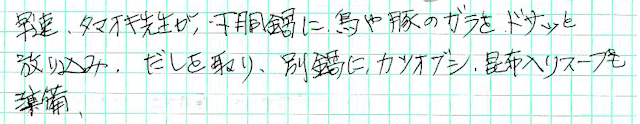 早速、タマオキ先生が、寸胴鍋に、鳥や豚のガラを、ドサッと
放り込み、だしを取り、別鍋に、カツオブシ、昆布入りスープも
準備、